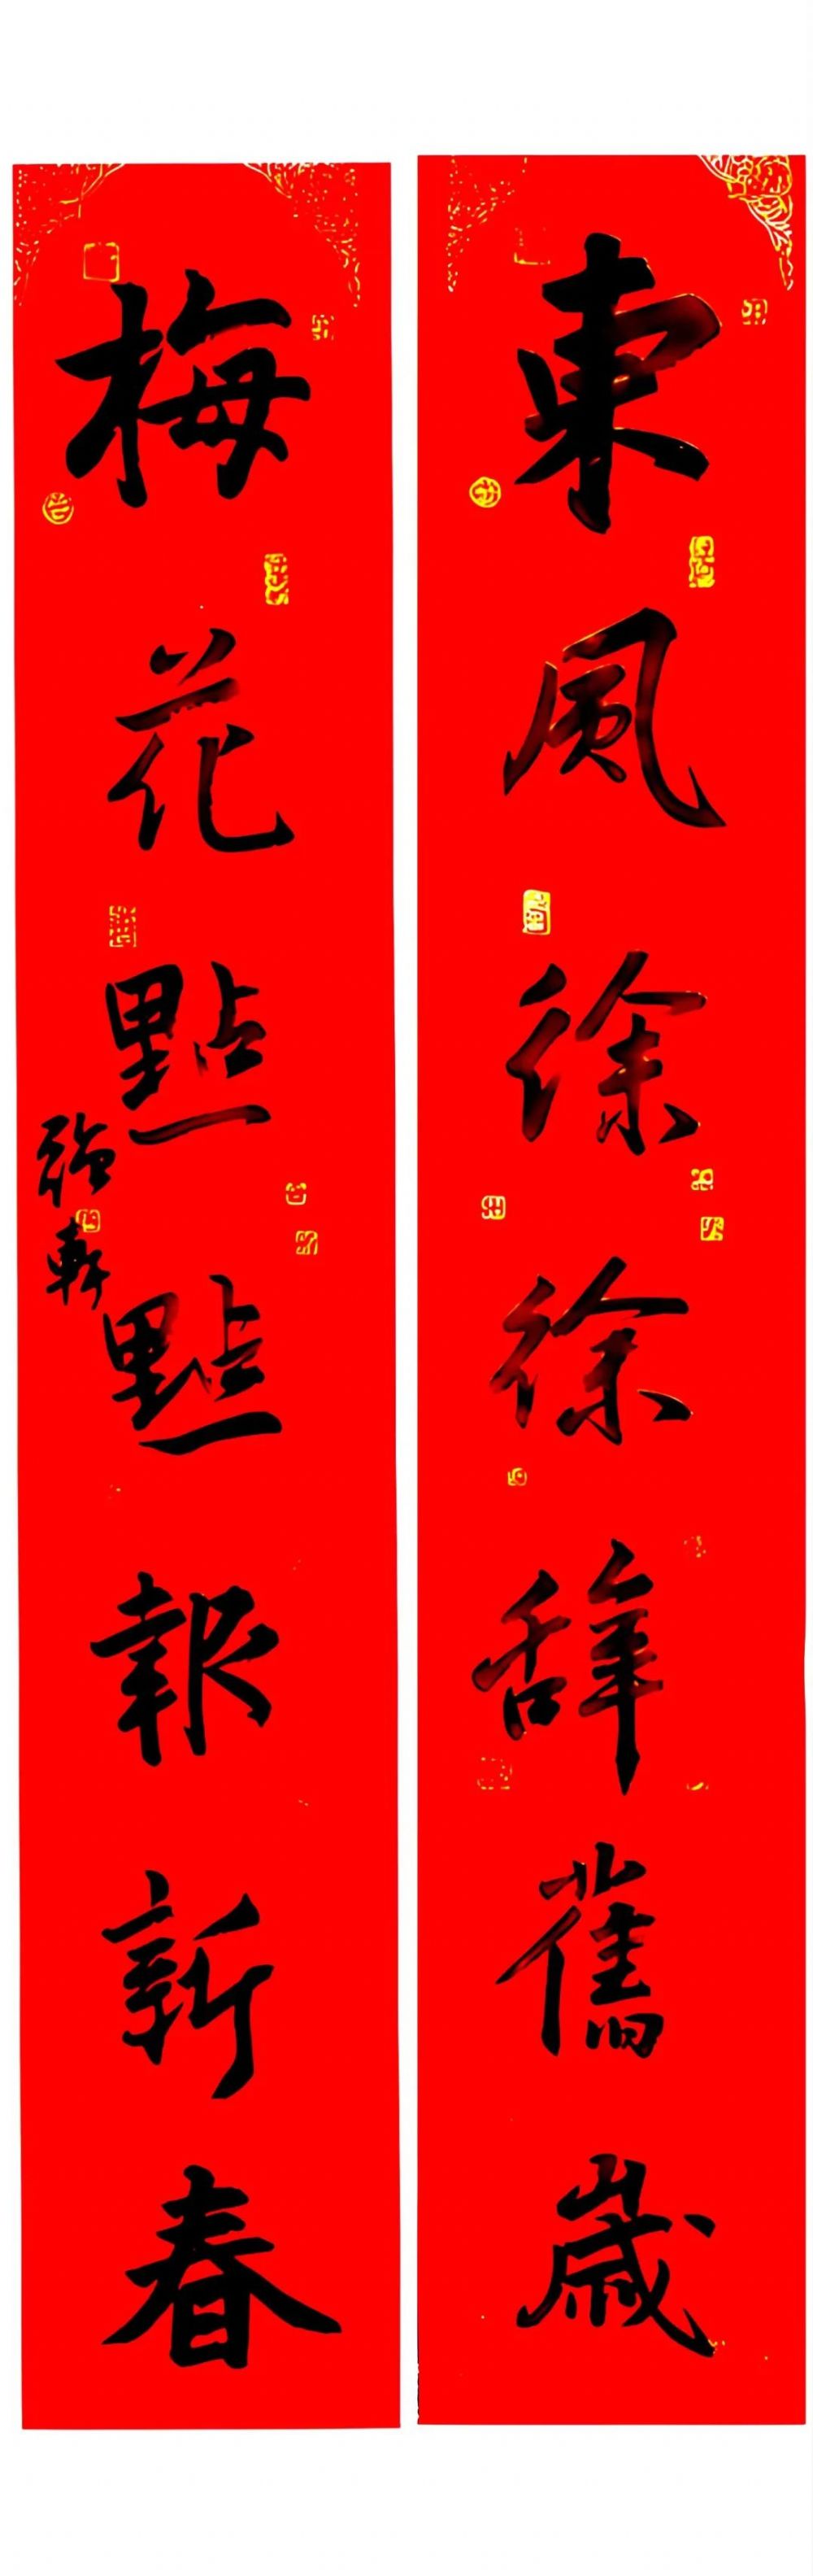 東風徐徐辭舊歲
梅花點點報新春
強軒